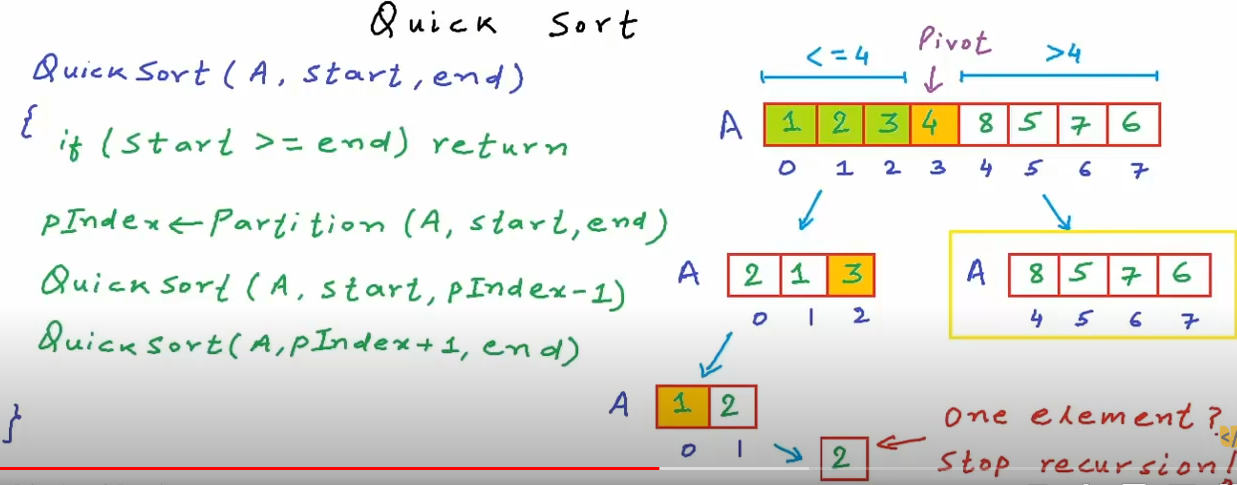 Quick Sort
QuickSort (A, start, end)
{
if (start >= end) return
pIndex ← Partition (A, start, end)
QuickSort (A, start, pIndex-1)
QuickSort (A, pIndex+1, end)
}
<=4 Pivot >4
A 1 2 3 4 8 5 7 6
0 1 2 3 4 5 6 7
A 2 1 3
0 1 2
A 8 5 7 6
4 5 6 7
A 1 2
0 1
2
One element?
Stop recursion!